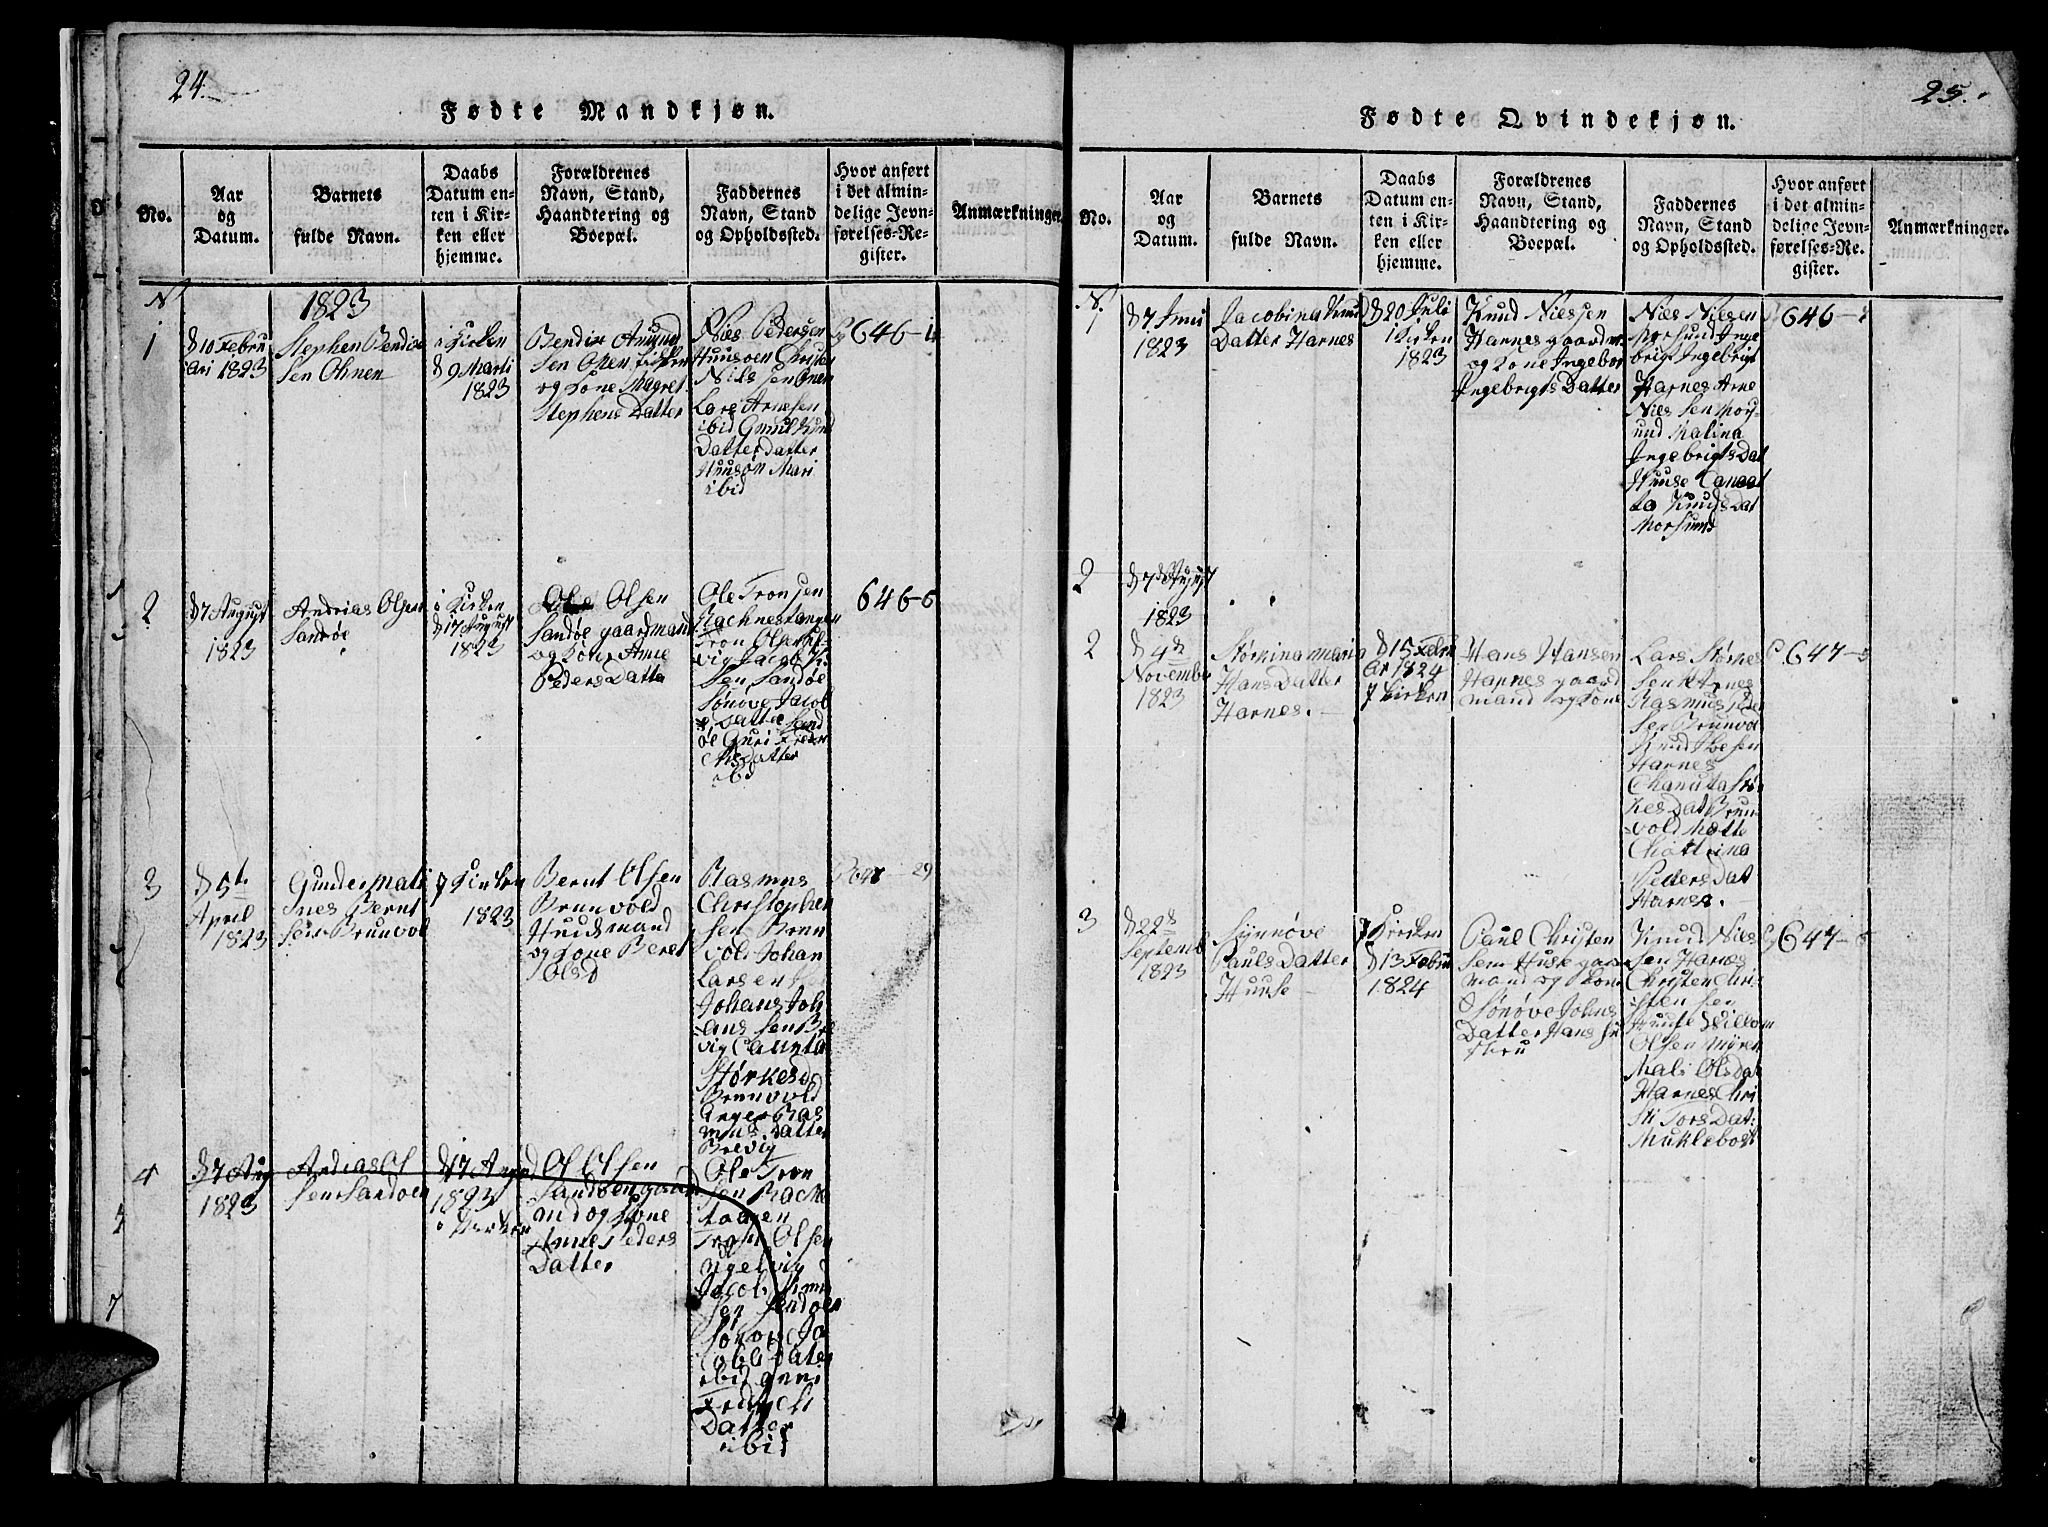 24.
Fødte Mandkjøn.
No.
Aar
og
Datum.
Barnets
fulde Navn.
Daabs
Datum en-
ten i Kir-
ken eller
hjemme.
Forældrenes
Navn, Stand,
Haandtering og
Boepæl.
Faddernes
Navn, Stand
og Opholdssted.
Hvor anført
i det almin-
delige Jevn-
førelses-Re-
gister.
Anmærkninger.
N
1823
1
d 10 Febru
ari 1823
Stephen Bendix
Sen Ohnen
i Kirken
d 9 Marti
1823
Bendix Amund
Sen Ohnen
og Kone Magret
Stephens Datter
Niels Pedersen
Huusøen Christen
Nils Sen Ohnen
Lars Arnesen
ibid Gunil Knud
Datter Datter
Huusøn Mari
ibid
646-
2
d 7 August
1823
Andreas Olsen
Sandøe
i Kirken
d 17 August
1823
Ole Olsen
Sandøe gaardmand
og Kone Anne
Peders Datter
Ole Tronsen
Rachnestangen
Tron Olsen
vig Jacob K
Sen Sandøe
Sønøve Jacob
Datter Sand
øe Guri Fredri
chs Datter
ibid
646-6
3
d 5t
April
1823
Gunder Mati
Ines Bernt
Sen Brunvol
I Kirken
1823
Bernt Olsen
Brunvold
Huusmand
og Kone Beret
Olsd
Rasmus
Christophen
Sen Brun
vold Johan
Larsen
Johans Joh
ans Sen
vig Caunta
Størkesd
Brunvold
Inger Ras
mus Datter
Brevig
29
4
d 7 Aug
1823
Andreas Ol
Sen Sandøen
d 17 Augud
1823
i Kirken
Ol Olsen
Sandøen gaard
md og Kone
Anne Peders
Datter
Ole Tron
Sen Rach
tangen
Tron Olsen
Ugelvig
Jacob Knud
Sen Sandøen
Sønove Ja
cobs Dater
ibid Guri
Fridrich
Datter
ibid
25.
Fødte Qvindekjøn.
No.
Aar
og
Datum.
Barnets
fulde Navn.
Daabs
Datum en-
ten i Kir-
ken eller
hjemme.
Forældrenes
Navn, Stand,
Haandtering og
Boepæl.
Faddernes
Navn, Stand
og Opholdssted.
Hvor anført
i det almin-
delige Jevn-
førelses-Re-
gister.
Anmærkninger.
N.
1
d 7 Juni
1823
Jacobina Knud
Datter Harnes
d 20 Juli
i Kirken
1823
Knud Nielsen
Harnes gaardm
og Kone Ingebor
Ingebrigts Datter
Niels Nielsen
Morsund Inge
brigt Ingebrigt
Harnes Arne
Niels Sen Mor
sund Malina
Ingebrigts Dat
Huuse
Knuds Dat
Morsund
646-
2
d 7 August
1823
2
d 4th
November
1823
Størkina Maria
Hans Datter
Harnes.
d 15 Febr
ar 1824
I Kirken
Hans Hansen
Harnes gaard
mand og Kone
Lars Størkes
Sen Harnes
Rasmus Peder
Sen Brunvol
Knud Ibsen
Harnes
Chanuta Stør
kes Dat Brun
vold Mette
Chattrina
Peders Dat
Harnes.
647-5
3
d 22d
Septemb
1823
Synnøve
Pauls Datter
Huuse
I Kircken
d 13 Febru
1824
Paul Christen
Sen Huse gaar
mand og Kone
Sønøve Johns
Datter Hans Hu
stru
Knud Niels
Sen Harnes
Christen Chri
sten Sen
Huuse Willom
Olsen Myren
Mali Olsdat
Harnes Chri
sti Tors Dat:
Muklebost
647-6